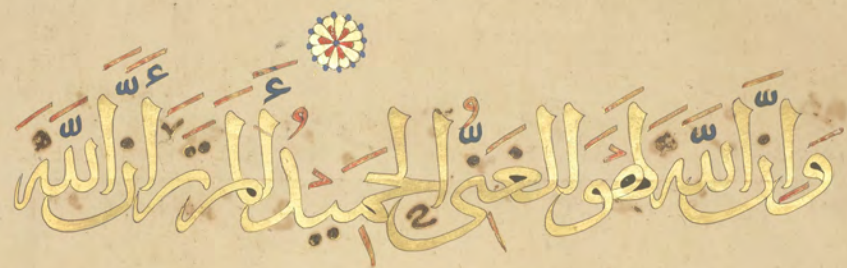 وَإِنَّ اللَّهَ لَهُوَ الْغَنِيُّ الْحَمِيدُ أَلَمْ تَرَ أَنَّ اللَّهَ